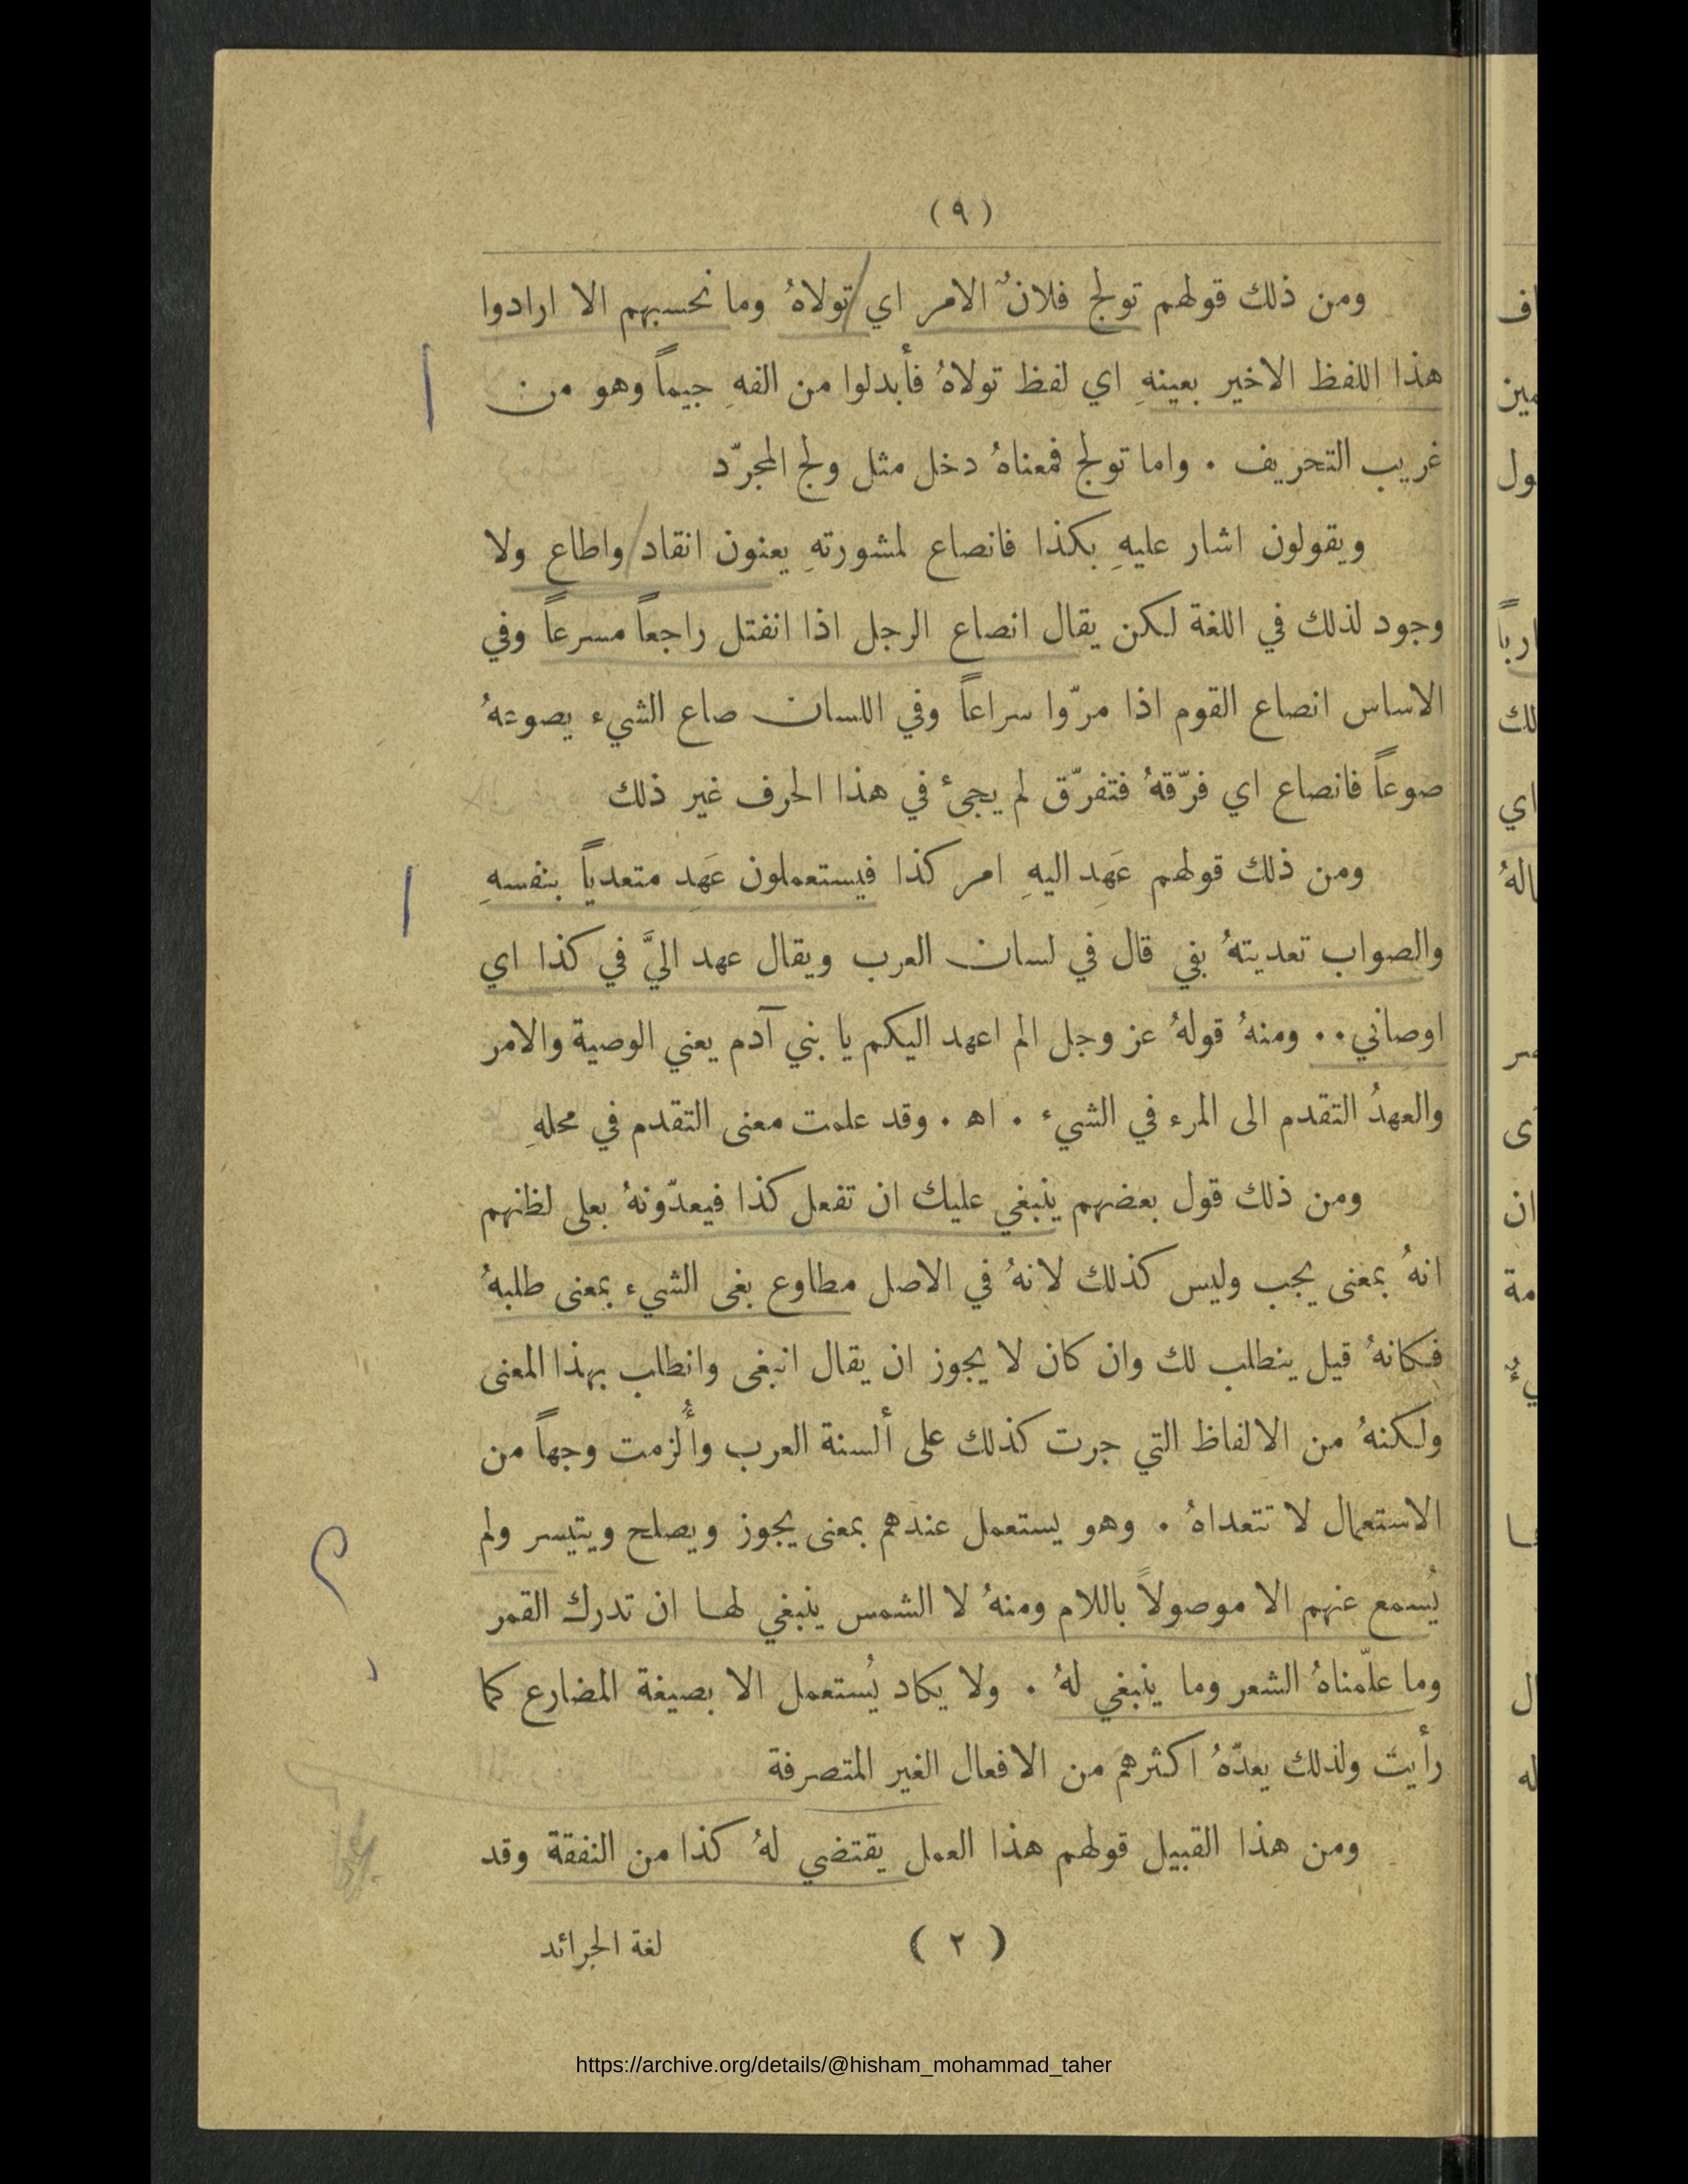 (٩)
ومن ذلك قولهم تولج فلانٌ الامر اي تولاهُ وما نحسبهم الا ارادوا
هذا اللفظ الاخير بعينهِ اي لفظ تولاهُ فأبدلوا من الفهِ جيماً وهو من
غريب التحريف . واما تولج فمعناهُ دخل مثل ولج المجرّد
ويقولون اشار عليهِ بكذا فانصاع لمشورتهِ يعنون انقاد واطاع ولا
وجود لذلك في اللغة لكن يقال انصاع الرجل اذا انفتل راجعاً مسرعاً وفي
الاساس انصاع القوم اذا مرّوا سراعاً وفي اللسان صاع الشيء يصوعهُ
صوعاً فانصاع اي فرّقهُ فتفرّق لم يجئ في هذا الحرف غير ذلك
ومن ذلك قولهم عَهِد اليهِ امر كذا فيستعملون عَهِد متعدياً بنفسهِ
والصواب تعديتهُ بفي قال في لسان العرب ويقال عهد اليَّ في كذا اي
اوصاني . . ومنهُ قولهُ عز وجل الم اعهد اليكم يا بني آدم يعني الوصية والامر
والعهدُ التقدم الى المرء في الشيء . اه . وقد علمت معنى التقدم في محلهِ
ومن ذلك قول بعضهم ينبغي عليك ان تفعل كذا فيعدّونهُ بعلى لظنهم
انهُ بمعنى يجب وليس كذلك لانهُ في الاصل مطاوع بغى الشيء بمعنى طلبهُ
فكانهُ قيل ينطلب لك وان كان لا يجوز ان يقال انبغى وانطلب بهذا المعنى
ولكنهُ من الالفاظ التي جرت كذلك على ألسنة العرب وأُلزمت وجهاً من
الاستعمال لا تتعداهُ . وهو يستعمل عندهم بمعنى يجوز ويصلح ويتيسر ولم
يُسمع عنهم الا موصولاً باللام ومنهُ لا الشمس ينبغي لها ان تدرك القمر
وما علّمناهُ الشعر وما ينبغي لهُ . ولا يكاد يُستعمل الا بصيغة المضارع كما
رأيت ولذلك يعدّهُ اكثرهم من الافعال الغير المتصرفة
ومن هذا القبيل قولهم هذا العمل يقتضي لهُ كذا من النفقة وقد
(٢) لغة الجرائد
https://archive.org/details/@hisham_mohammad_taher